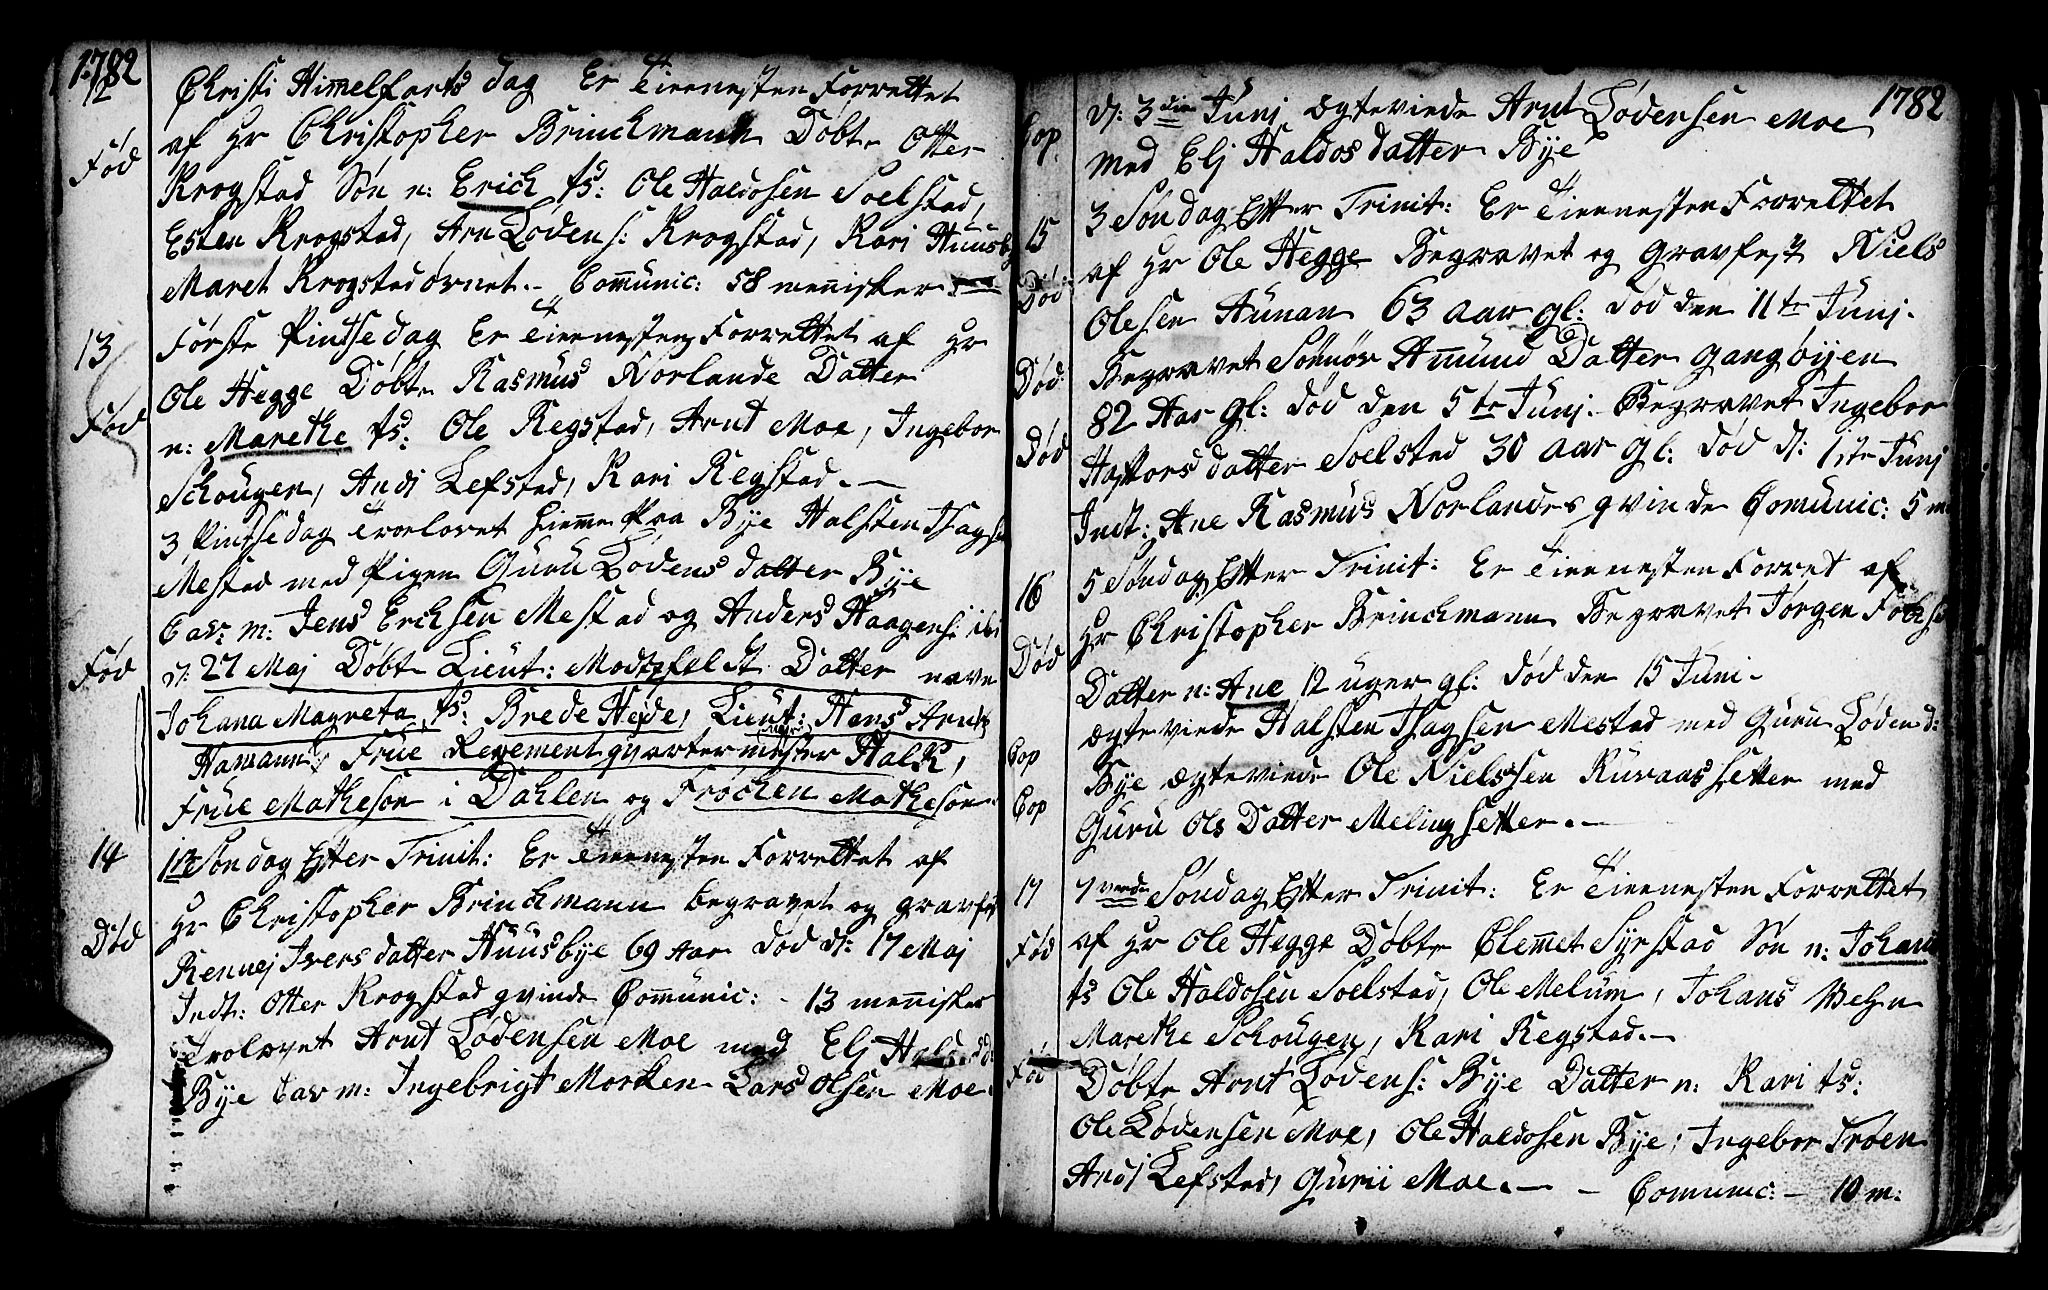 1782
12
Christi Himmelfarts dag Er Tieenesten Forrettet
af Hr Christopher Brinchmann Døbte Otter
Fød
Krogstad Søn n: Erich fs: Ole Haldosen Soelstad,
Esten Krogstad, Arn Lødens: Krogstad, Kari Huusby
Maret Krogstadøvnet. Com̄unic: 58 men̄isker
13
Første Pintse dag Er Tieenesten Forrettet af Hr
Ole Hegge Døbte Rasmus Norlande Datter
Fød
n: Marethe fs: Ole Regstad, Arnt Moe, Ingebor
Schougen, Andi Lefstad, Kari Regstad.
3 Pintse dag Troelovet hiemme fra Bye Halsten Thagsen
Mestad med Pigen Guru Lødens datter Bye
Cav: m: Jens Erichsen Mestad og Anders Haagens: ibi
Fød
d: 27 Maj Døbt Lieut: Modtzfeldt Datter navn
Johana Magreta fs: Brede Hejde, Lieut: Hans Arntz
Hamann, Frue Regement qvartermester Halk,
Frue Matheson i Dahlen og Frøchen Matheson
14
1ste Søndag Efter Trinit: Er Tieenesten Forrettet af
Hr Christopher Brinchmann begravet og gravfest
Død
Rennej Ivers datter Huusbye 69 Aar død d: 17 Maj
Indt: Otter Krogstad qvinde Com̄unic: - 13 men̄isker
Trolovet Arnt Lødensen Moe med Elj
Bye Cav m: Ingebrigt Morken Lars Olsen Moe
1782
Cop
d: 3die Junj ægteviede Arnt Lødensen Moe
med Elj Haldos datter Bye
3 Søndag Efter Trinit: Er Tieenesten Forrettet
15
af Hr Ole Hegge Begravet og gravfest Niels
Død
Olesen Aunan 63 aar gl: død den 11te Junj.
Død
Begravet Amund Datter gangøijen
82 Aar gl: død den 5te Junj. Begravet Ingebor
Død
Hafvors datter Soelstad 30 aar gl: død d: 1ste Junj
Indt: Ane Rasmus Norlandes qvinde Comunic: 5 m
5 Søndag Efter Trinit: Er Tieenesten Forret af
16
Hr Christopher Brinchmann Begravet Jørgen
Død
Datter n: Ane 12 uger gl: død den 15 Juni.
Cop
ægteviede Halsten Thagsen Mestad med Guru Løden d:
Cop
Bye ægteviede Ole Nielssen Ruvaassetter med
Guru Ols Datter Melingsetter.
17
7 vende Søndag Efter Trinit: Er Tieenesten Forrettet
Fød
af Hr Ole Hegge Døbt Clemmet Syrstad Søn n: Johan
fs Ole Haldosen Soelstad, Ole Melum, Johans Vehn
Marethe Schougen, Kari Regstad.
Fød
Døbte Arnt Lødens: Bye Datter n: Kari fs:
Ole Lødensen Moe, Ole Haldosen Bye, Ingebor Trøen
Andj Lefstad, Gurii Moe. - Comunic: - 10 m: